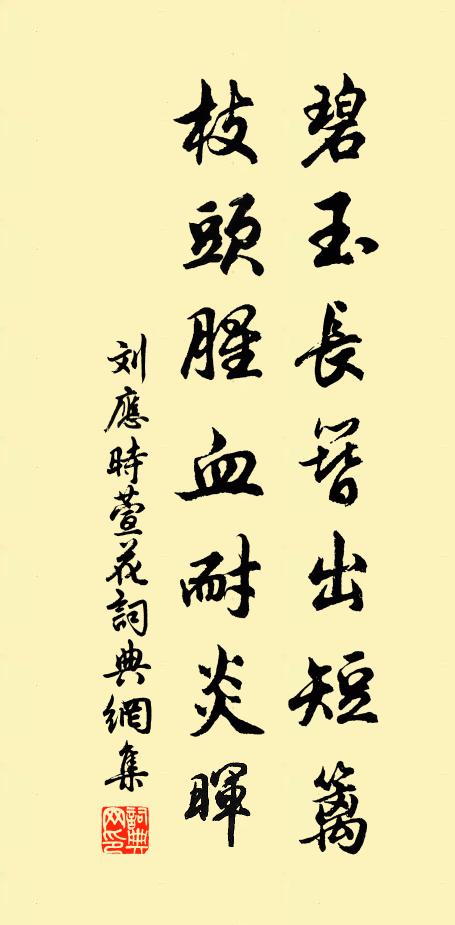 碧玉長簪出短篱
枝頭腥血耐炎暉
刘應時萱花詞典網集
詞典网印